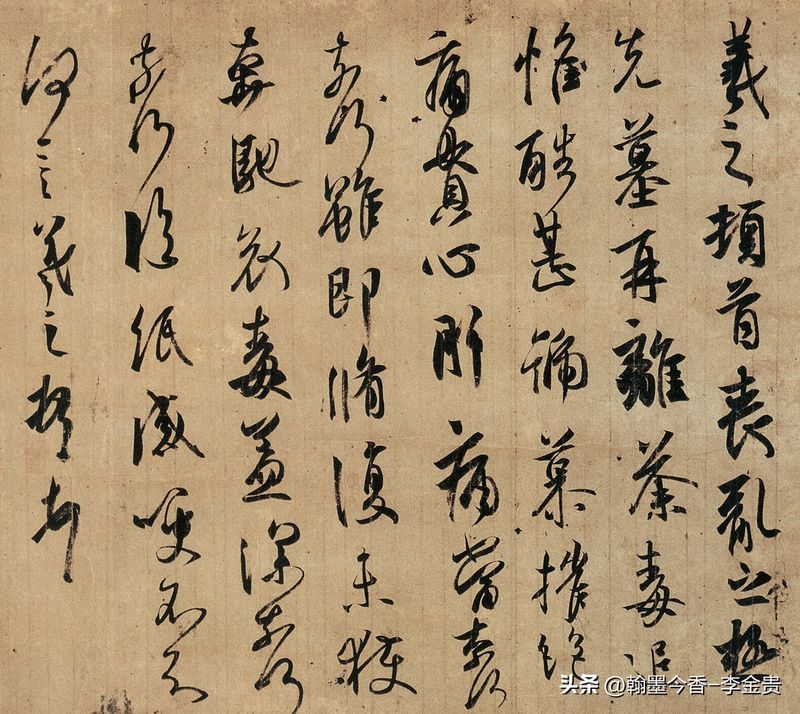 羲之頓首喪亂之極
先墓再離荼毒追
惟酷甚號慕摧絕
痛貫心肝痛當奈何
奈何雖即脩復未獲
奔馳哀毒益深奈何
奈何臨紙感哽不知
何言羲之頓首頓首
头条 @翰墨今香-李金贵